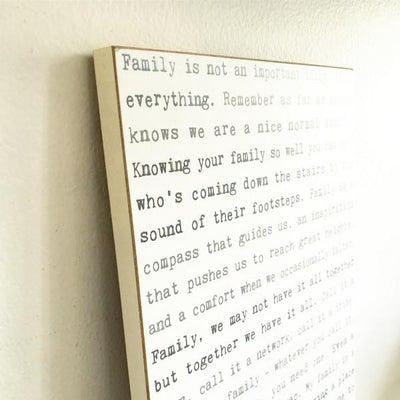 Family is not an important thing
everything. Remember as far as
knows we are a nice normal
Knowing your family so well you can
who's coming down the stairs by
sound of their footsteps. Family
compass that guides us. an inspiration
that pushes us to reach great heights
and a comfort when we occasionally falter.
Family, we may not have it all together
but together we have it all. Call it a
call it a network, call it a tribe
family - whatever you call it
you need one.
My family is a